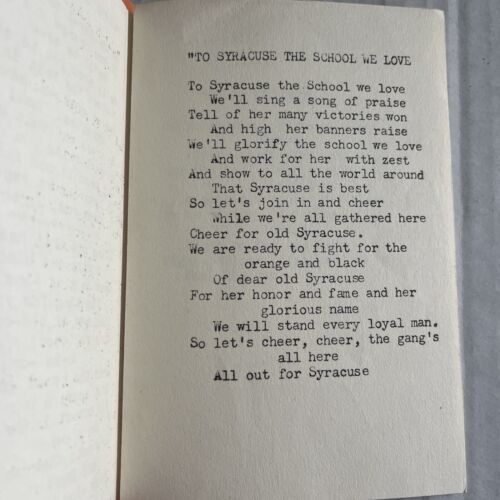 "TO SYRACUSE THE SCHOOL WE LOVE
To Syracuse the School we love
We'll sing a song of praise
Tell of her many victories won
And high her banners raise
We'll glorify the school we love
And work for her with zest
And show to all the world around
That Syracuse is best
So let's join in and cheer
While we're all gathered here
Cheer for old Syracuse.
We are ready to fight for the
orange and black
Of dear old Syracuse
For her honor and fame and her
glorious name
We will stand every loyal man.
So let's cheer, cheer, the gang's
all here
All out for Syracuse